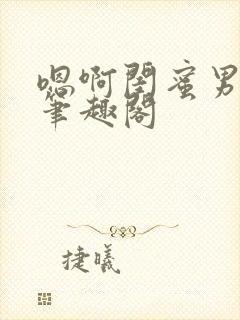 嗯啊閨蜜男
筆趣閣
捷曦